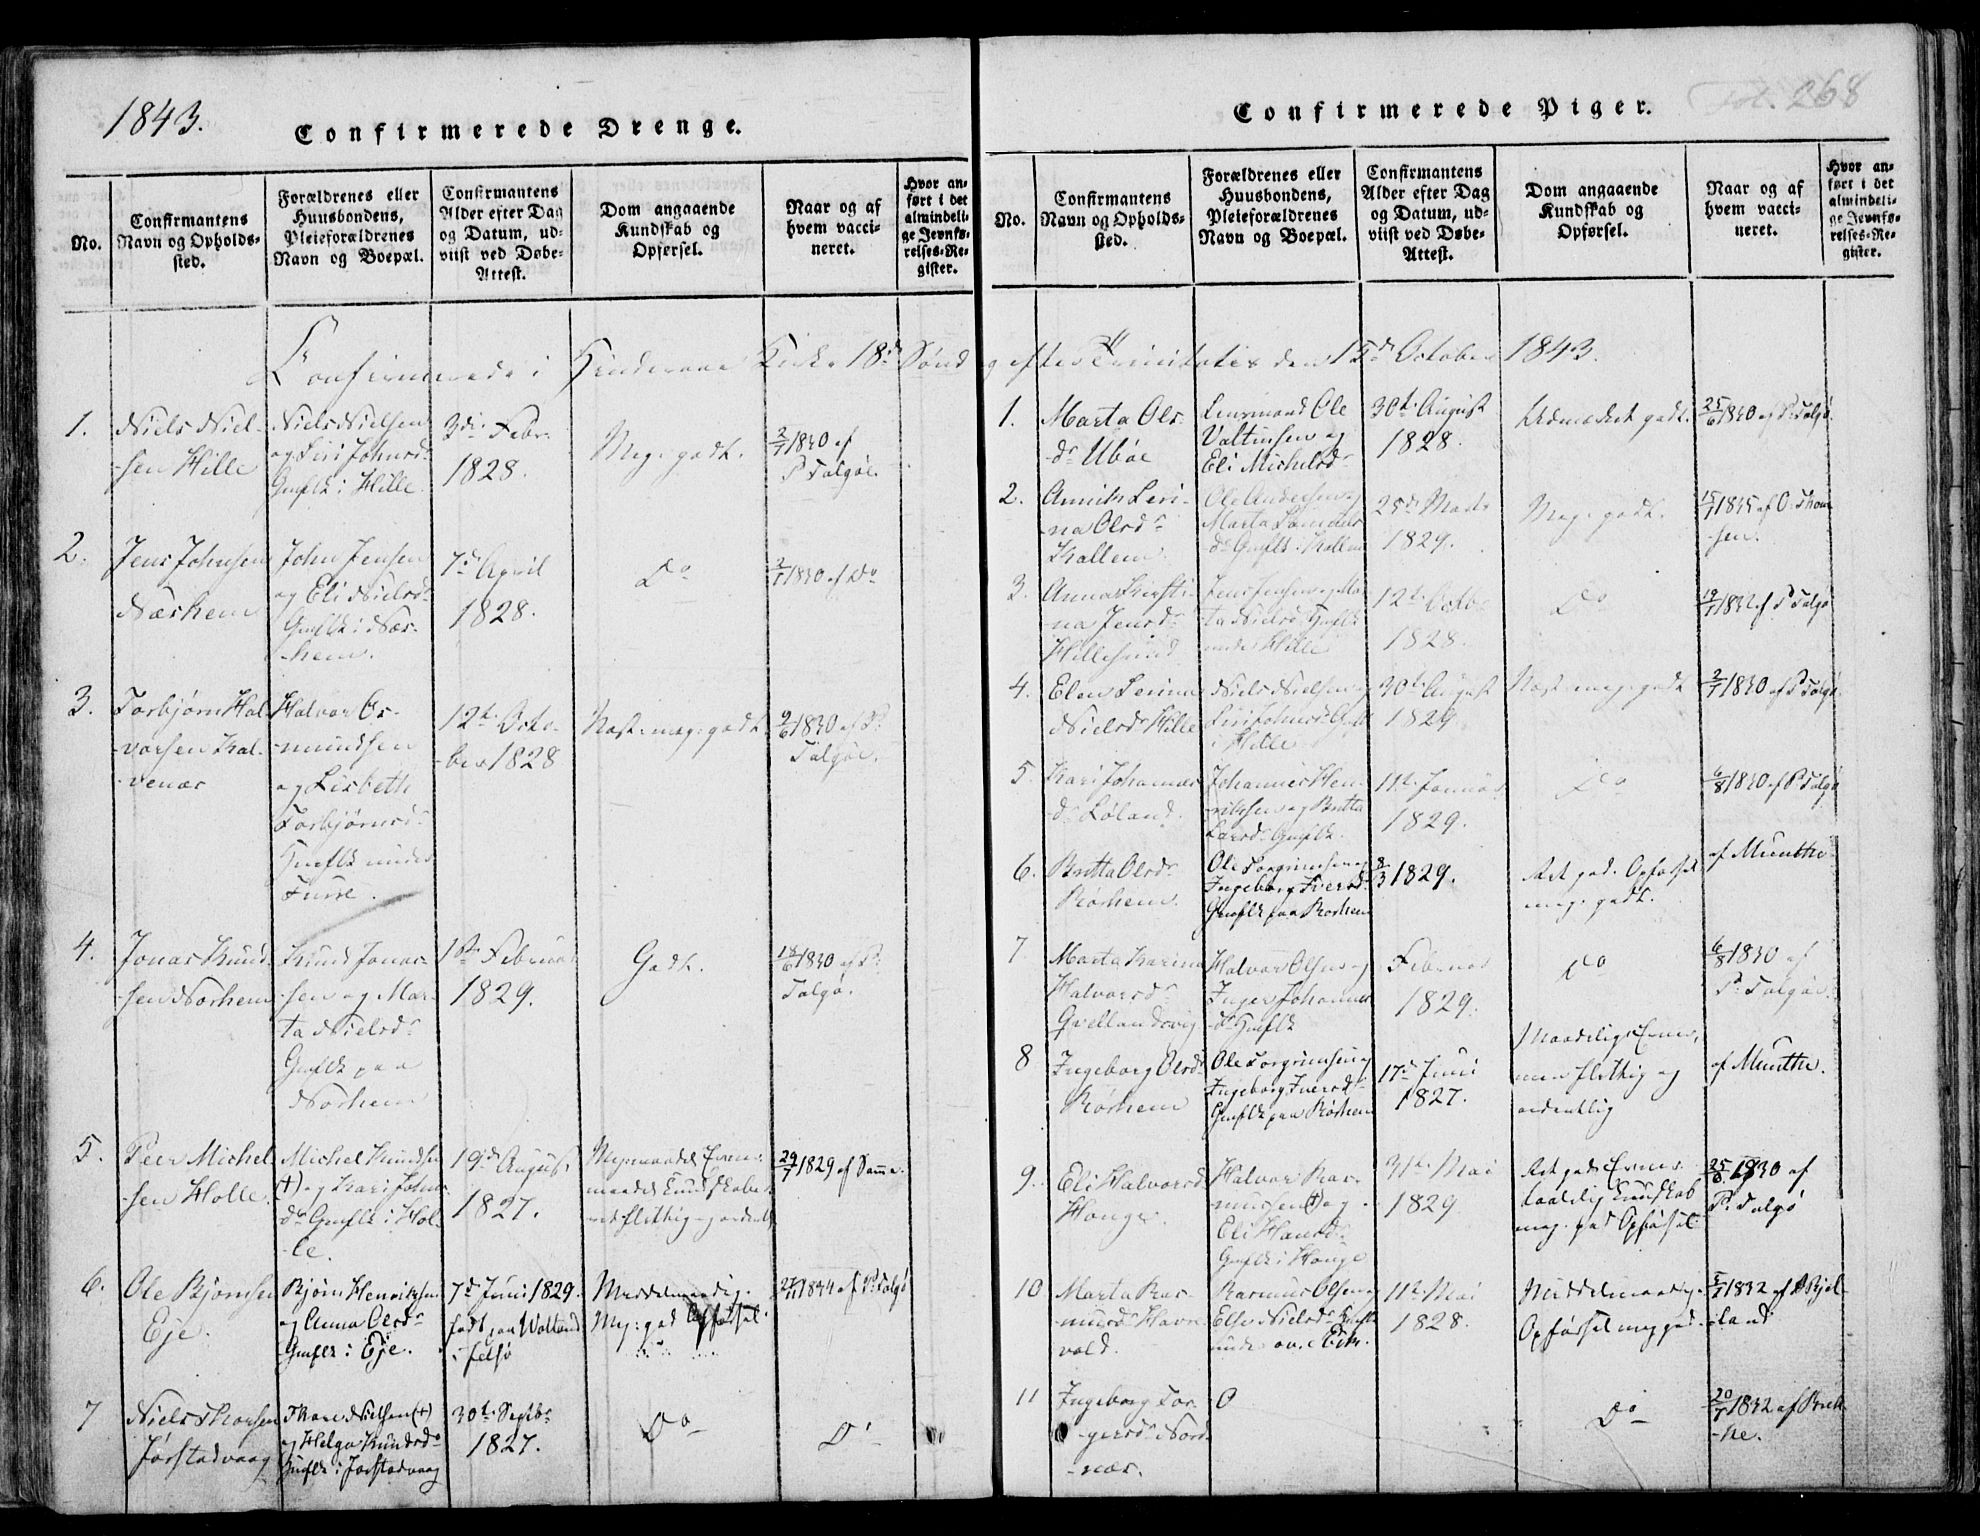 1843.
Confirmerede Drenge.
No.
Confirmantens
Navn og Opholds-
sted.
Forældrenes eller
Huusbondens,
Pleieforældrenes
Navn og Boepæl.
Confirmantens
Alder efter Dag
og Datum, ud-
viist ved Døbe-
Attest.
Dom angaaende
Kundskab og
Opførsel.
Naar og af
hvem vacci-
neret.
Hvor an-
ført i det
almindeli-
ge Jevnfø-
relses-Re-
gister.
Confirmerede i Hinderaae Kirke 18de Sønd
1.
Niels Niel-
sen Hille
Niels Nielsen
og Siri Johnsd.
Gmflk i Hille
3die Febr.
1828.
Meg. godt.
2/7 1830 af
P Talgøe
2.
Jens Johnsen
Næshem
John Jensen
og Eli Nielsdr
Gmflk i Næs-
hem.
7de April
1828.
Do
2/7 1830 af Do
3.
Torbjørn Hal-
vorsen Kal-
venæs
Halvor Os-
mundsen
og Lisbeth
Torbjørnsd.
Hmflk under
Furre.
12te Octo-
ber 1828
Næst. meg. godt.
9/6 1830 af P.
Talgøe.
4.
Jonas Knud-
sen Norhem
Knud Jonas-
sen og Mar-
ta Nielsdr
Gmflk paa
Norhem
1ste Februar
1829.
Godt.
18/6 1830 af P.
Talgø.
5.
Peer Michel-
sen Holle
Michel Knudsen
(†) og Kari Johns-
dr Gmflk i Hol-
le.
19de August
1827.
29/7 1829 af Samme.
6.
Ole Bjørnsen
Eje.
Bjørn Henriksen
og Anna Olsdr
Gmflk i Eje.
7de Juni 1829.
født paa Watland
i Jelsø
Middelmaadig.
Meg. god Opførsel.
27/11 1834 af P. Talgø
7
Niels Thorsen
Jørstadvaag
Thore Nielsen (†)
og Helga Knudsdr
Gmflk i Jørstadvaag
30te Septbr
1827.
Do
Do
Fol. 268
Confirmerede Piger.
No.
Confirmantens
Navn og Opholds-
sted.
Forældrenes eller
Huusbondens,
Pleieforældrenes
Navn og Boepæl.
Confirmantens
Alder efter Dag
og Datum, ud-
viist ved Døbe-
Attest.
Dom angaaende
Kundskab og
Opførsel.
Naar og af
hvem vacci-
neret.
Hvor an-
ført i det
almindeli-
ge Jevnfø-
relses-Re-
gister.
g efter Trinitatis den 15de October 1843.
1.
Marta Ols-
dr Ubøe
Lensmand Ole
Valtinsen og
Eli Michelsdr
30te August
1828.
Udmærket godt.
25/6 1830 af P. Talgø.
2.
Seri-
na Olsdr
Kallem
Ole Andersen og
Marta
dr Gmflk i Kallem
25de Marts
1829.
Meg. godt.
15/7 1835 af O. Thom-
sen.
3.
Anna Kirsti-
na Jensdr
Hillesund
Jens Jensen og Mar-
ta Nielsdr Hmflk
under Hille
12te Octbr
1828.
Do
19/7 1832 af P Talgø
4.
Elen Serina
Nielsdr Hille
Niels Nielsen og
Siri Johnsdr Gmflk
i Hille
30te August
1829
Næst. meg. godt
2/7 1830 af P Talgø
5
Kari Johannes-
dr Løland.
Johannes Hen-
riksen og Britta
Larsdr Gmflk.
11te Januar
1829.
Do
6/8 1830 af P. Talgø
6.
Britta Olsdr
Rørhem.
Ole Torgrimsen og
Ingeborg Iversdr
Gmflk paa Rørhem
8/3 1829.
Ret god. Opførsel
meg. godt.
af Munthe
7
Marta Karina
Halvorsdr
Qvellandsvig
Halvor Olsen og
Inger Johannes-
dr Hmflk
Februar
1829.
Do
6/8 1830 af
P. Talgøe.
8
Ingeborg Olsdr
Rørhem
Ole Torgrimsen og
Ingeborg Iversdr
Gmflk paa Rørhem
17de Juni
1827.
Maadelige Evner,
men flittig og
ordentlig
af Munthe.
9.
Eli Halvorsdr
Houge.
Halvor Ras-
mussen (†) og
Eli Hansdr
Gmflk i Houge
31te Mai
1829
Ret gode Evner.
taalelig Kundskab
meg. god Opførsel
25/6 1830 af
P. Talgø
10
Marta Ras-
musdr Havre-
vold.
Rasmus Olsen og
Else Nielsdr Hmflk
under
11te Mai
1828.
Middelmaadig.
Opførsel meg god.
5/7 1832 af Bjel-
land
11
Ingeborg Tor-
gersdr Nord-
næs.
O
Do
20/7 1832 af Brek-
ke.